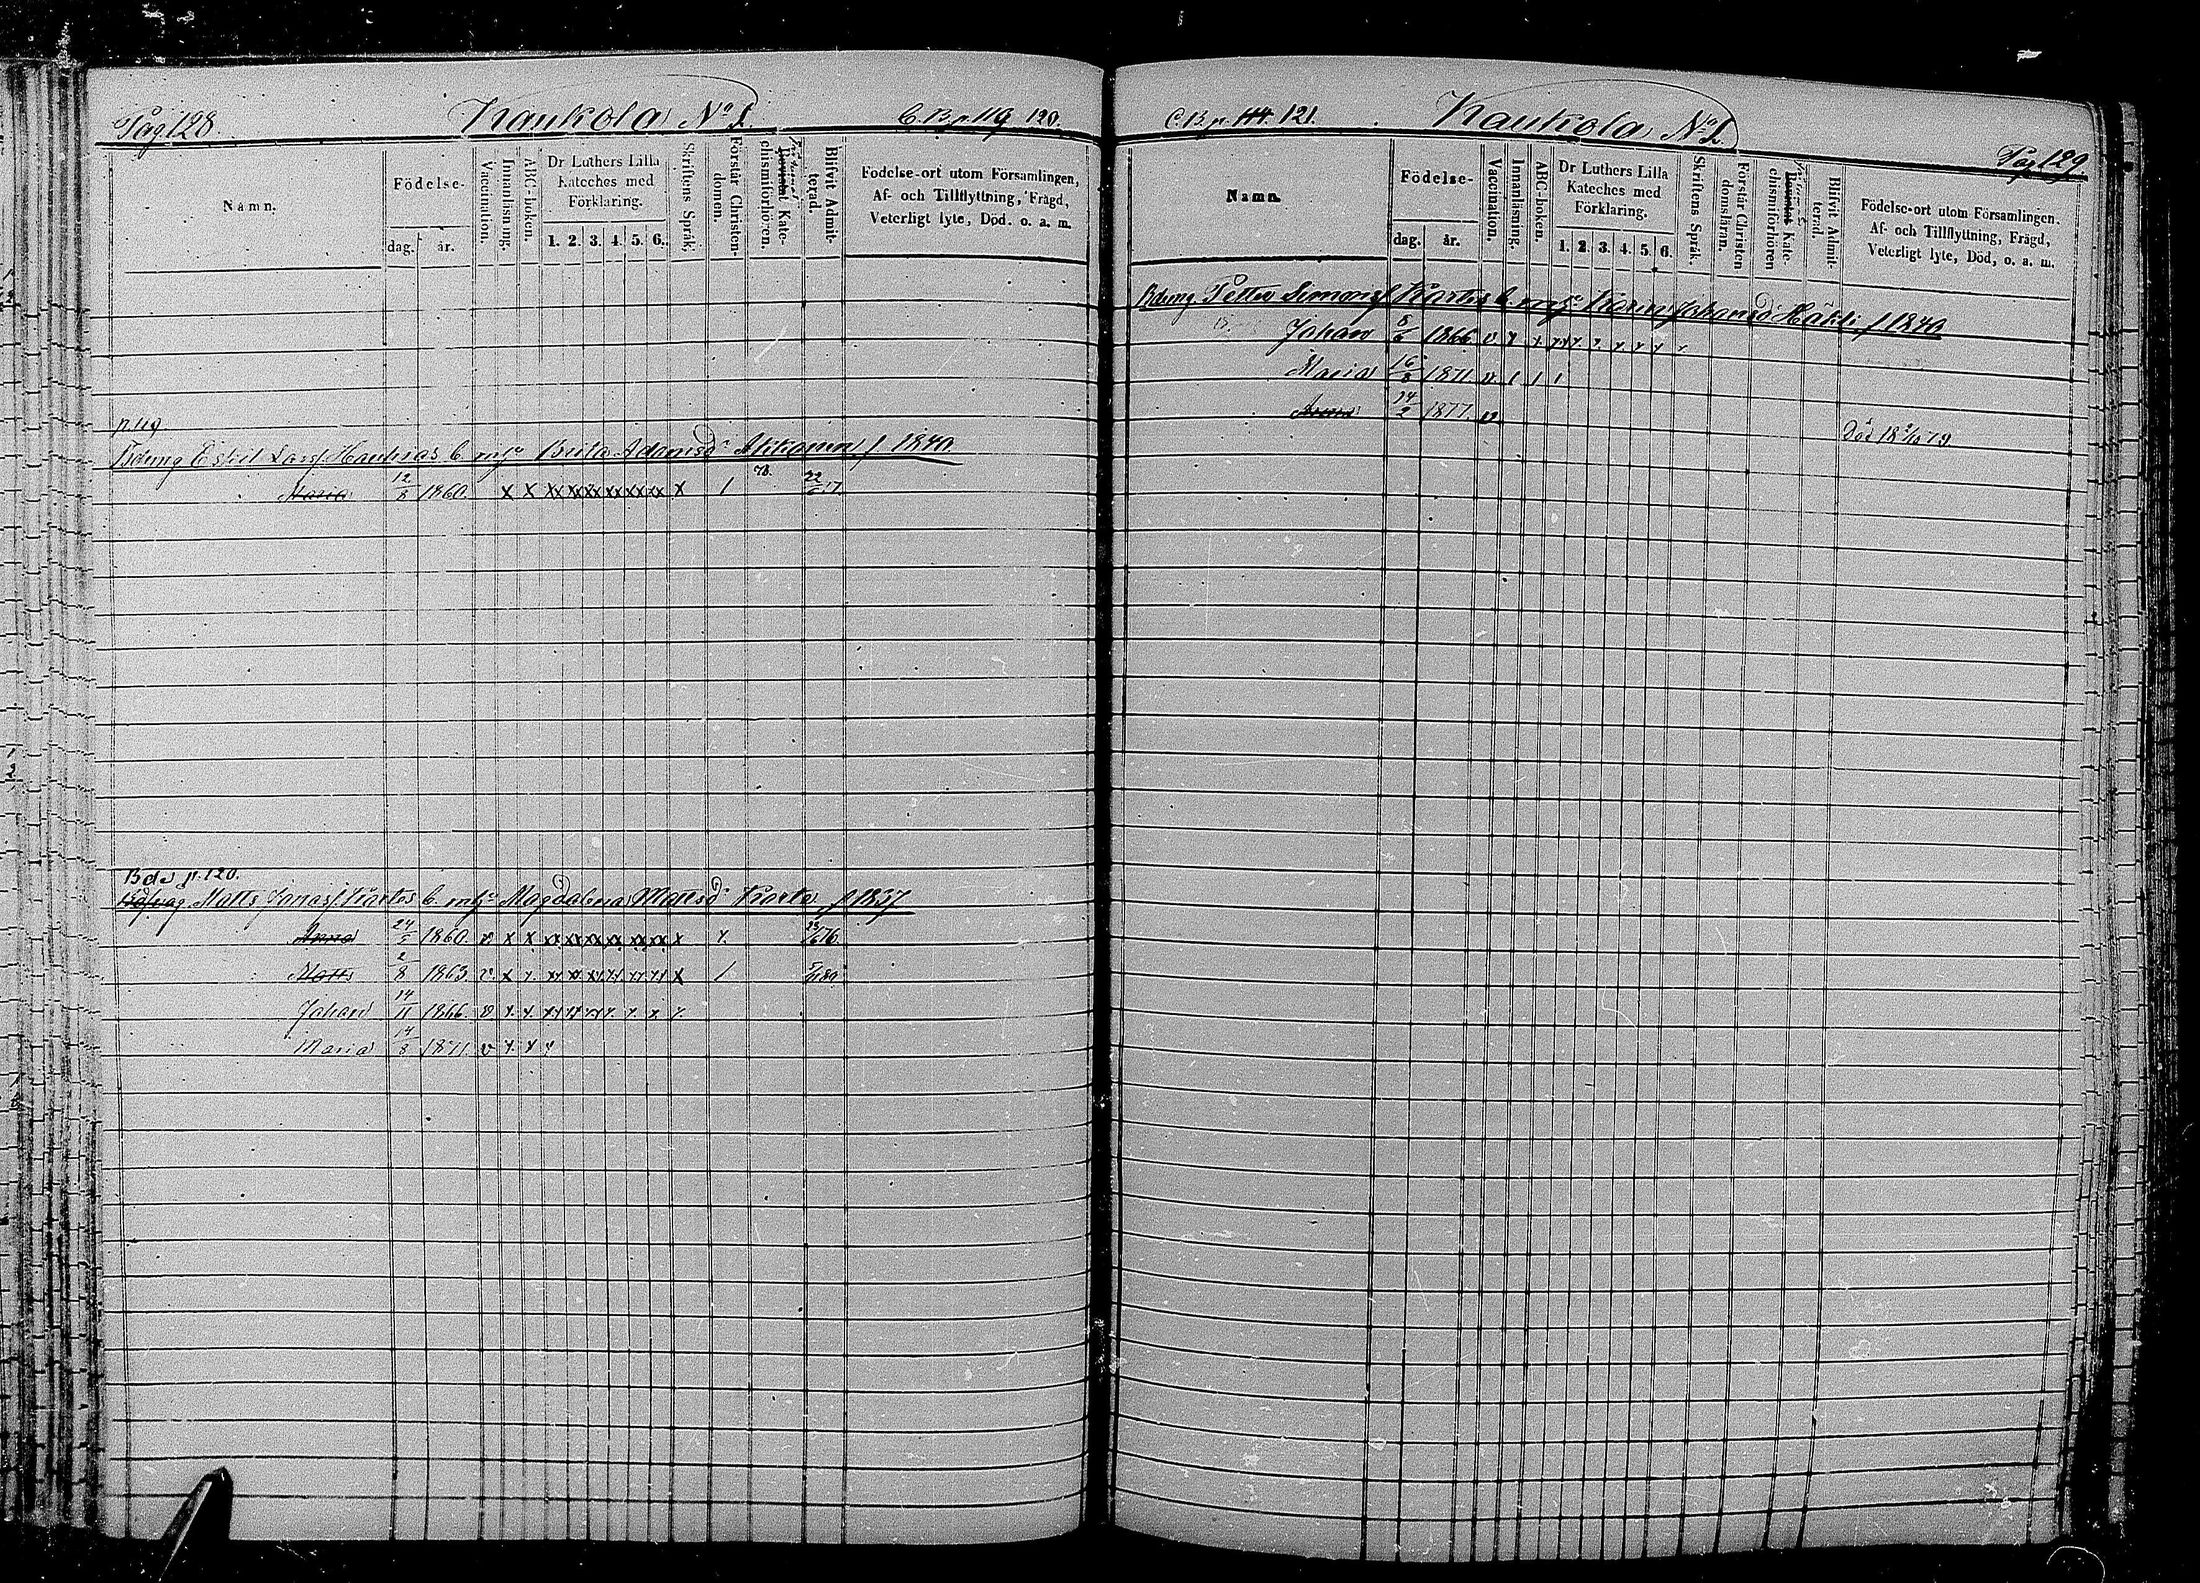 Pag 128. Kaukola No 1. C. B. p. 119 120.
Namn.
Födelse-
dag. år.
Vaccination.
Innanläsning.
ABC-boken.
Dr Luthers Lilla
Kateches med
Förklaring.
1. 2. 3. 4. 5. 6.
Skriftens Språk.
Förstår Christen-
domen.
Bevistat Kate-
chismiförhören.
Blifvit Admit-
terad.
Födelse-ort utom Församlingen,
Af- och Tillflyttning, Frägd,
Veterligt lyte, Död. o. a. m.
p. 119
Bdung Eskil Larsf Haukas b. m Brita Adamsd f 1840.
Maria 12/8 1860. x x xx xx xx xx xx xx x 1 78. 22/6 17.
Bde p. 120.
Matts Jonasf Kartes b. m Magdalena Mattsd Karte f 1837
Anna 24/5 1860. v x x xx xx xx xx xx xx x x. 24/6 76.
Matts 2/8 1863 v x x. xx xx xx xx xx xx x 1 80.
Johan 14/11 1866. v x. x. xx xx xx x. x. x x.
Maria 14/8 1871. v x. x x
C. B. p. 121. Kaukola No 1. Pag 129
Namn.
Födelse-
dag. år.
Vaccination.
Innanläsning.
ABC-boken.
Dr Luthers Lilla
Kateches med
Förklaring.
1. 2. 3. 4. 5. 6.
Skriftens Språk
Förstår Christen
domsläran.
Bevistat Kate-
chismiförhören
Blifvit Admit-
terad.
Födelse-ort utom Församlingen.
Af- och Tillflyttning, Frägd,
Veterligt lyte, Död, o. a. m.
Bdung Petter Simonsf Kartes b. m Karin Johansd Häkli f 1840
Johan 8/6 1866. v x x. xx x. x. x. x x x
Maria 16/8 1871. v 1 1 1
Anna 14/2 1877. v
Död 18 79